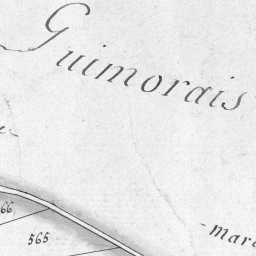 Guimorais
66
565